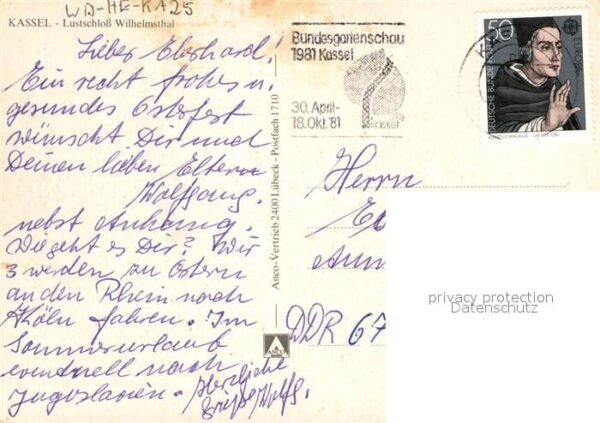 WD-HE-KA25
KASSEL - Lustschloß Wilhelmsthal
Lieber Eberhard!
Ein recht frohes u.
gesundes Osterfest
wünscht Dir und
Deinen lieben Eltern
Wolfgang,
nebst Anhang.
Wie geht es Dir? Wir
3 werden zu Ostern
an den Rhein nach
Köln fahren. Im
Sommerurlaub
eventuell nach
Jugoslavien. Herzliche
Grüße Wolfg.
Anco-Vertrieb 2400 Lübeck - Postfach 1710
ANCO
Bundesgartenschau
1981 Kassel
30. April-
18. Okt. '81
Kassel
50
EUROPA
DEUTSCHE BUNDESPOST
ALBERTUS MAGNUS
Herrn
DDR 67
privacy protection
Datenschutz